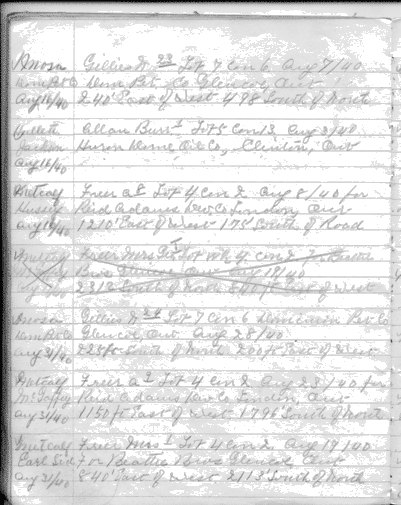 Mosa Gillies #23 Lot 7 Con 6 Aug 7/40
Dom Pet Co Dom Pet. Co Glencoe, Ont
Aug 16/40 240' East of West 498 South of North
Allan Burr #1 Lot 5 Con 13 Aug 3/40
Jackson Huron Dome Oil Co, Clinton, Ont
Aug 16/40
Metcalf Freer A #8 Lot 4 Con 2 Aug 8/40 for
Reid Adams Dev Co London, Ont
Aug 19/40 1210' East of West 175' South of Road
Metcalf Freer Mrs Lot 4 Con 2 Beattie
Bros Glencoe Ont Aug 19/40
South of North East of West
Mosa Gillies #24 Lot 7 Con 6 Dominion Pet Co
Dom Pet Co Glencoe, Ont. Aug 28/40
Aug 31/40 228 ft South of North 200 ft East of West
Metcalf Freer A Lot 4 Con 2 Aug 23/40 for
Reid Adams Dev Co London, Ont
Aug 31/40 1150 ft East of West 1796 South of North
Metcalf Freer Mrs #1 Lot 4 Con 2 Aug 19/40
Earl For Beattie Bros Glencoe Ont
Aug 31/40 840' East of West 2113' South of North